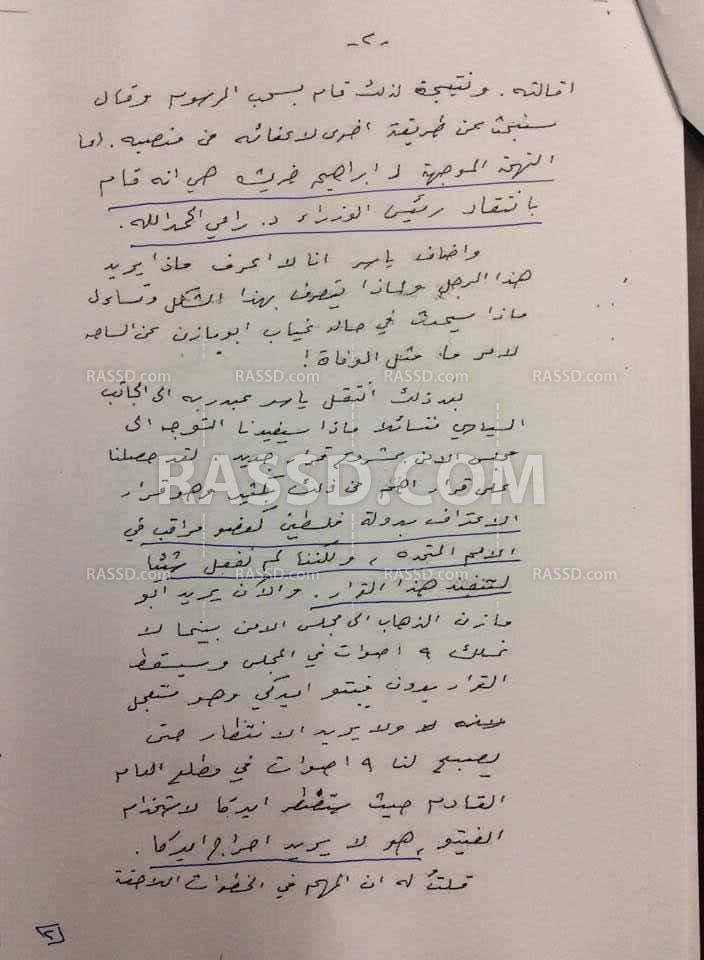 -٢-
اقالته. ونتيجة لذلك قام بسحب المرسوم وقال
سنبحث عن طريقة اخرى لاعفائه من منصبه. اما
التهمة الموجهة لـ ابراهيم خريشه هي انه قام
بانتقاد رئيس الوزراء د. رامي الحمدالله.
واضاف ياسر انا لا اعرف ماذا يريد
هذا الرجل ولماذا يتصرف بهذا الشكل وتساءل
ماذا سيحدث في حاله غياب ابو مازن عن الساحه
لامر ما، مثل الوفاة!
بعد ذلك انتقل ياسر عبدربه الى الجانب
السياسي متسائلا ماذا سيفيدنا التوجه الى
مجلس الامن بمشروع قرار جديد. لقد حصلنا
على قرار اهم من ذلك بكثير وهو قرار
الاعتراف بدولة فلسطين كعضو مراقب في
الامم المتحده، ولكننا لم نفعل شيئا
لتنفيذ هذا القرار. والآن يريد ابو
مازن الذهاب الى مجلس الامن بينما لا
نملك ٩ اصوات في المجلس وسيسقط
القرار بدون فيتو اميركي وهو مستعجل
لانه ولا يريد الانتظار حتى
يصبح لنا ٩ اصوات في مطلع العام
القادم حيث ستضطر اميركا لاستخدام
الفيتو، هو لا يريد احراج اميركا.
قلتُ له ان المهم في الخطوات اللاحقة
٢
RASSD.com RASSD.com RASSD.com RASSD.com
RASSD.COM
RASSD.com RASSD.com RASSD.com RASSD.com